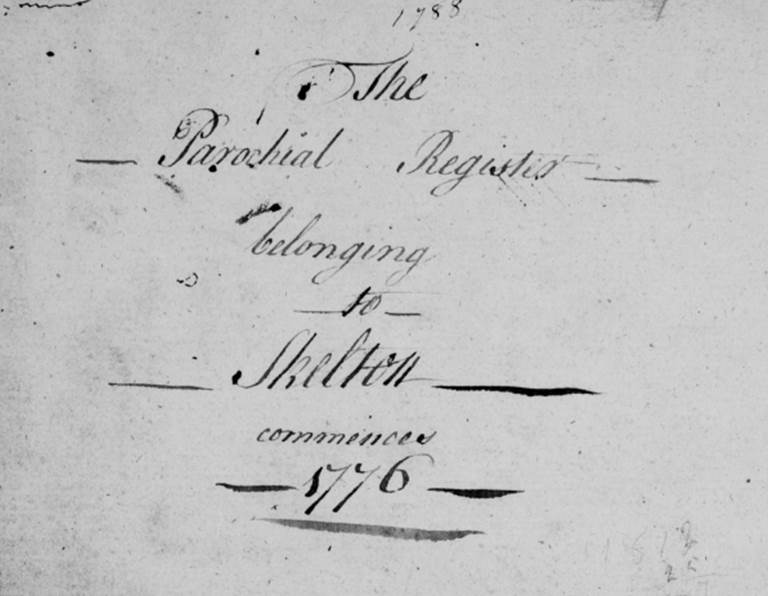 1788
The
Parochial Register
belonging
to
Skelton
commences
1776